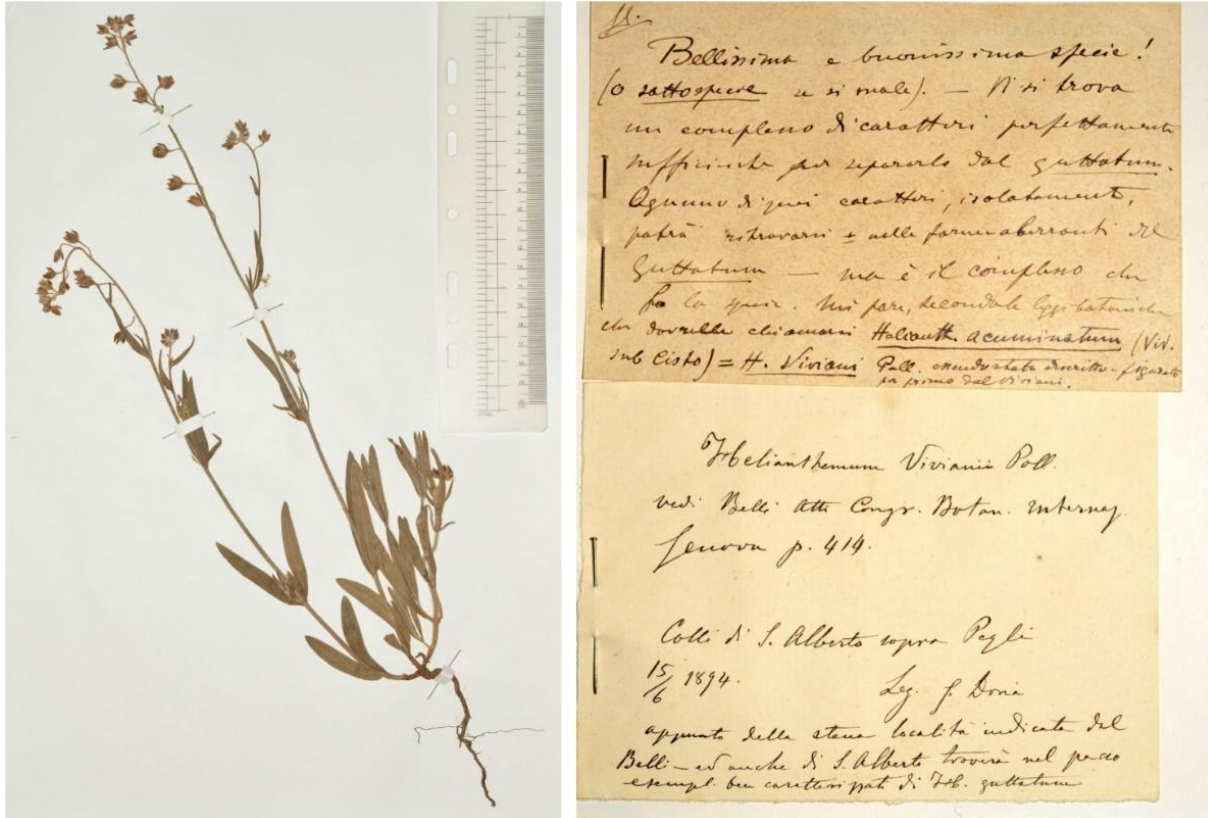 Bellissima e buonissima specie!
(o sottospecie se si vuole). — Vi si trova
un complesso di caratteri perfettamente
sufficiente per separarlo dal guttatum.
Ognuno di quei caratteri, isolatamente,
potrà ritrovarsi ± nelle forme aberranti del
guttatum — ma è il complesso che
fa la specie. Mi pare, secondo le leggi botaniche
che dovrebbe chiamarsi Helianth. acuminatum (Viv.
sub Cisto) = H. Viviani Poll. essendo stata descritta e figurata
per primo dal Viviani.
Helianthemum Vivianii Poll.
vedi Belli Atti Congr. Botan. internaz.
Genova p. 414.
Colli di S. Alberto sopra Peglii
15/6 1894.
Leg. G. Doria
appunto della stessa località indicata dal
Belli — ed anche di S. Alberto troverà nel pacco
esempl. ben caratterizzati di H. guttatum